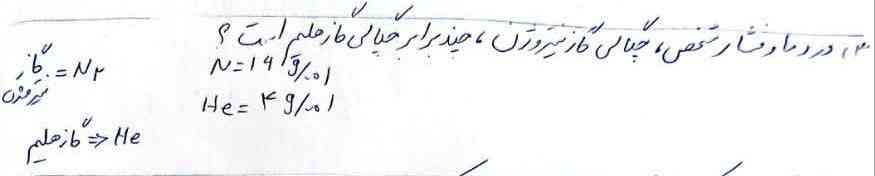 ۳، در دما و فشار مشخص، چگالی گاز نیتروژن، چند برابر چگالی گاز هلیم است؟
N = ۱۴ g/mol
He = ۴ g/mol
گاز نیتروژن = N۲
گاز هلیم ⇒ He